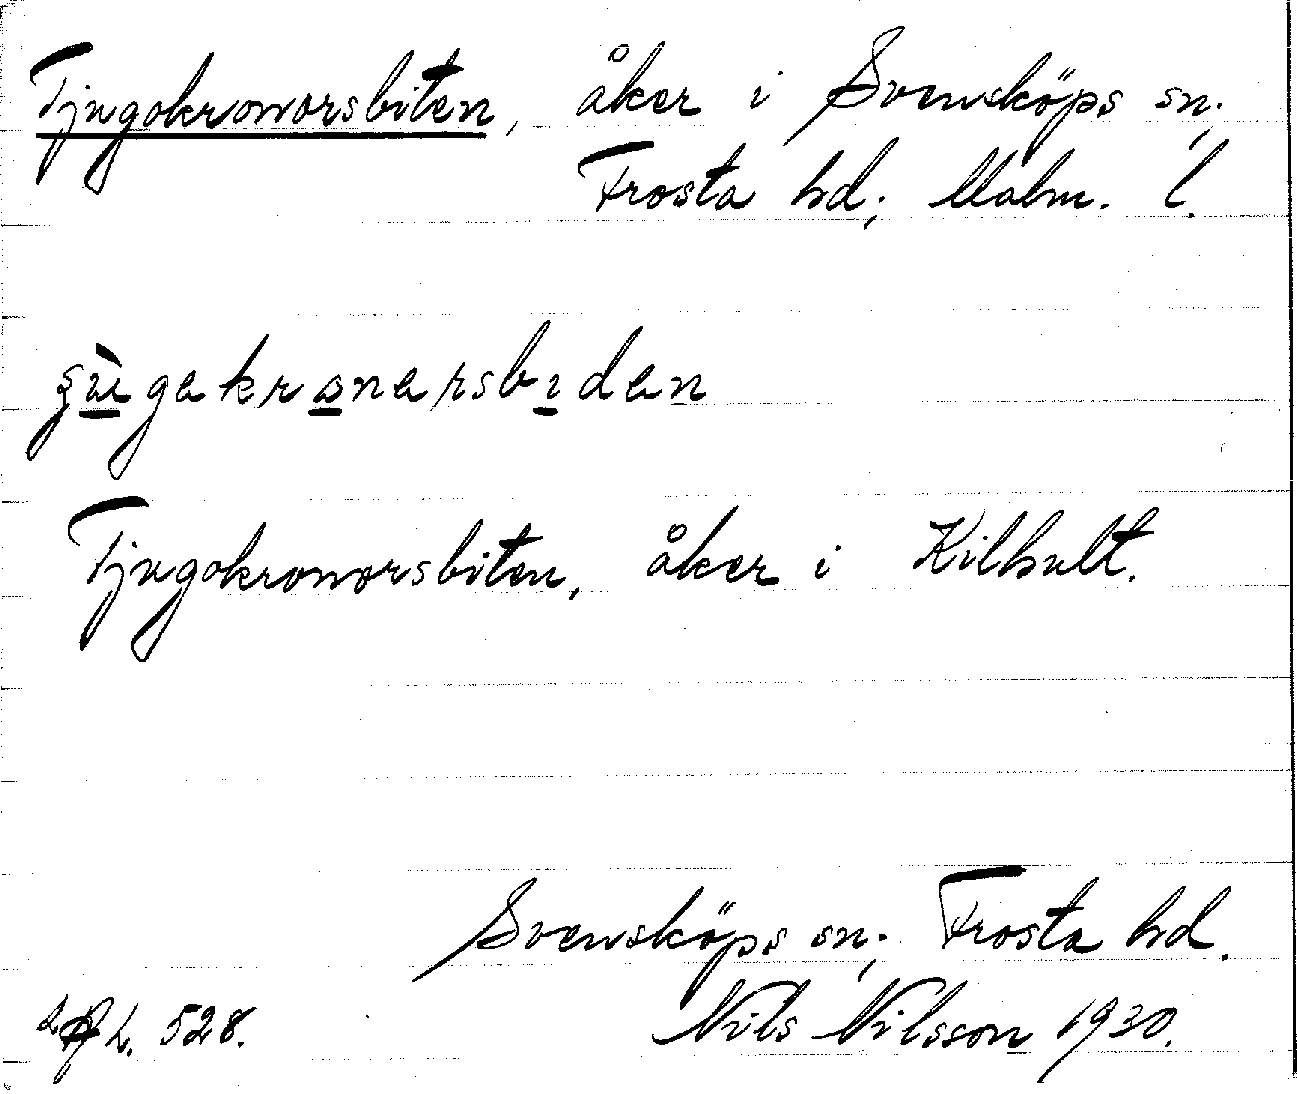 Tjugokronorsbiten, åker i Svensköps sn;
Frosta hd; Malm. l.
Tjugokronorsbiten, åker i Kilhult.
Svensköps sn; Frosta hd.
528.
Nils Nilsson 1930.